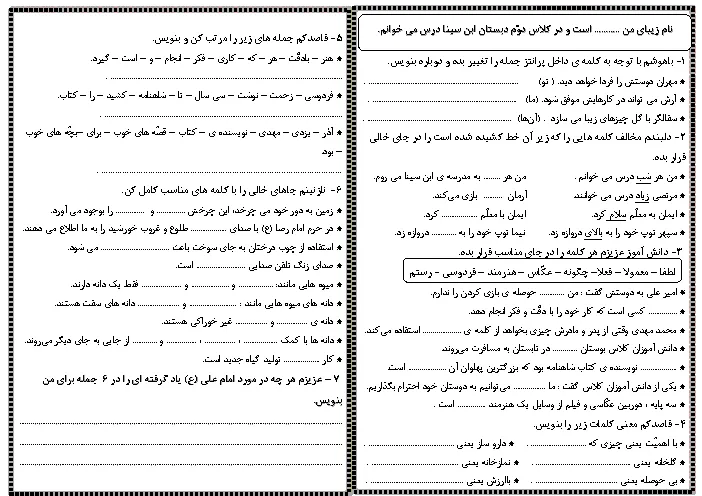 نام زیبای من ............ است و در کلاس دوّم دبستان ابن سینا درس می خوانم.
۱- باهوشم با توجه به کلمه ی داخل پرانتز جمله را تغییر بده و دوباره بنویس.
★ مهران دوستش را فردا خواهد دید. ( تو) ............................................
★ آرش می تواند در کارهایش موفق شود. (ما) ............................................ .
★ سفالگر با گل چیزهای زیبا می سازد . (آن‌ها) ............................................ .
۲- دلبندم مخالف کلمه هایی را که زیر آن خط کشیده شده است را در جای خالی
قرار بده.
★ من هر شب درس می خوانم . من هر ........ به مدرسه ی ابن سینا می روم.
★ مرتضی زیاد درس می خوانند. آرمان ........ بازی می‌کند.
★ ایمان به معلّم سلام کرد. ایمان با معلّم ................ کرد.
★ سپهر توپ خود را به بالای دروازه زد. نیما توپ خود را به ........... دروازه زد.
۳- دانش آموز عزیزم هر کلمه را در جای مناسب قرار بده.
لطفا – معمولا – فعلا– چگونه – عکّاس – هنرمند – فردوسی – رستم
★ امیر علی به دوستش گفت : من .......... حوصله ی بازی کردن را ندارم.
★ ............ کسی است که کار خود را با دقّت و فکر انجام دهد.
★ محمد مهدی وقتی از پدر و مادرش چیزی بخواهد از کلمه ی ............... استفاده می‌کند.
★ دانش آموزان کلاس بوستان ............ در تابستان به مسافرت می‌روند.
★ ............... نویسنده ی کتاب شاهنامه بود که بزرگترین پهلوان آن ............... است.
★ یکی از دانش آموزان کلاس گفت : ما ............. می‌توانیم به دوستان خود احترام بگذاریم.
★ سه پایه ، دوربین عکّاسی و فیلم از وسایل یک هنرمند ............. است .
۴- قاصدکم معنی کلمات زیر را بنویس.
★ با اهمیّت یعنی چیزی که ................... ★ دارو ساز یعنی .....................
★ گلخانه یعنی .......................... . ★ نمازخانه یعنی .......................... .
★ بی حوصله یعنی ....................... ★ باارزش یعنی .......................... .
۵- قاصدکم جمله های زیر را مرتب کن و بنویس.
★ هنر – بادقّت – هر – که – کاری – فکر – انجام – و – است – گیرد.
............................................................ .
★ فردوسی – زحمت – نوشت – سی سال – تا – شاهنامه – کشید – را – کتاب.
............................................................ .
★ آذر – یزدی – مهدی – نویسنده ی – کتاب – قصّه های خوب – برای –بچّه های خوب
– بود.
............................................................ .
۶- نازنینم جاهای خالی را با کلمه های مناسب کامل کن.
★ زمین به دور خود می چرخد، این چرخش ............ و ............ را بوجود می آورد.
★ در حرم امام رضا (ع) با صدای ............ طلوع و غروب خورشید را به ما اطلاع می دهند.
★ استفاده از چوب درختان به جای سوخت باعث .................. می شود.
★ صدای زنگ تلفن صدایی .................. است.
★ میوه هایی مانند: ............ و ............ و ............ فقط یک دانه دارند.
★ دانه های میوه هایی مانند : ............ و ............ دانه های سفت هستند.
★ دانه ی ............ و ............ غیر خوراکی هستند.
★ دانه ها با کمک ............ ، ............ ، ............ و ............ از جایی به جای دیگر می‌روند.
★ کار .............. تولید گیاه جدید است.
۷ – عزیزم هر چه در مورد امام علی (ع) یاد گرفته ای را در ۶ جمله برای من
بنویس.
............................................................
............................................................
............................................................